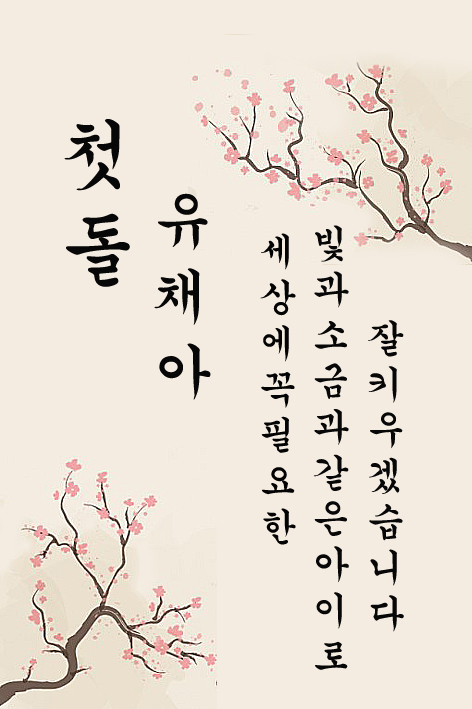 첫돌
유채아
세상에꼭필요한
빛과소금과같은아이로
잘키우겠습니다